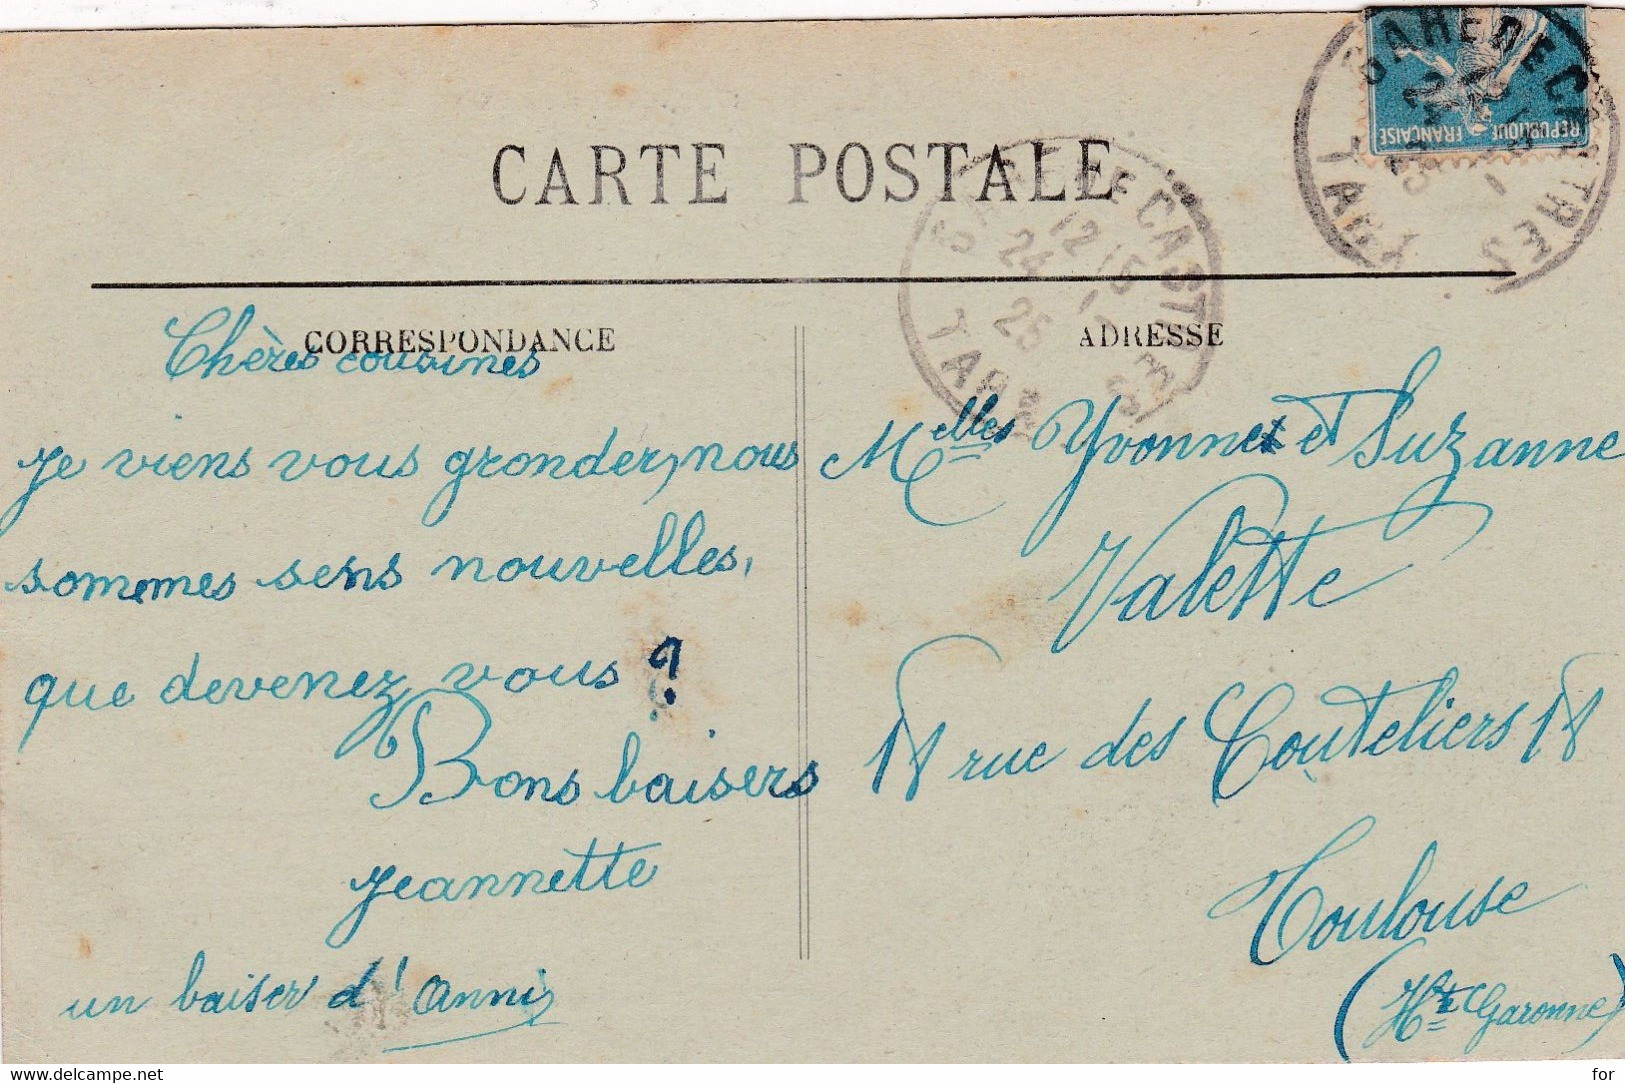 CARTE POSTALE
REPUBLIQUE FRANÇAISE
GARE DE CASTRES
TARN
GARE DE CASTRES
12 15
24 - 1
25
TARN
CORRESPONDANCE
Chères cousines
je viens vous gronder, nous
sommes sens nouvelles,
que devenez vous ?
Bons baisers
Jeannette
un baiser d'Anni
ADRESSE
Melles Yvonne et Suzanne
Valette
rue des Couteliers
Toulouse
(Hte Garonne)
delcampe.net
for